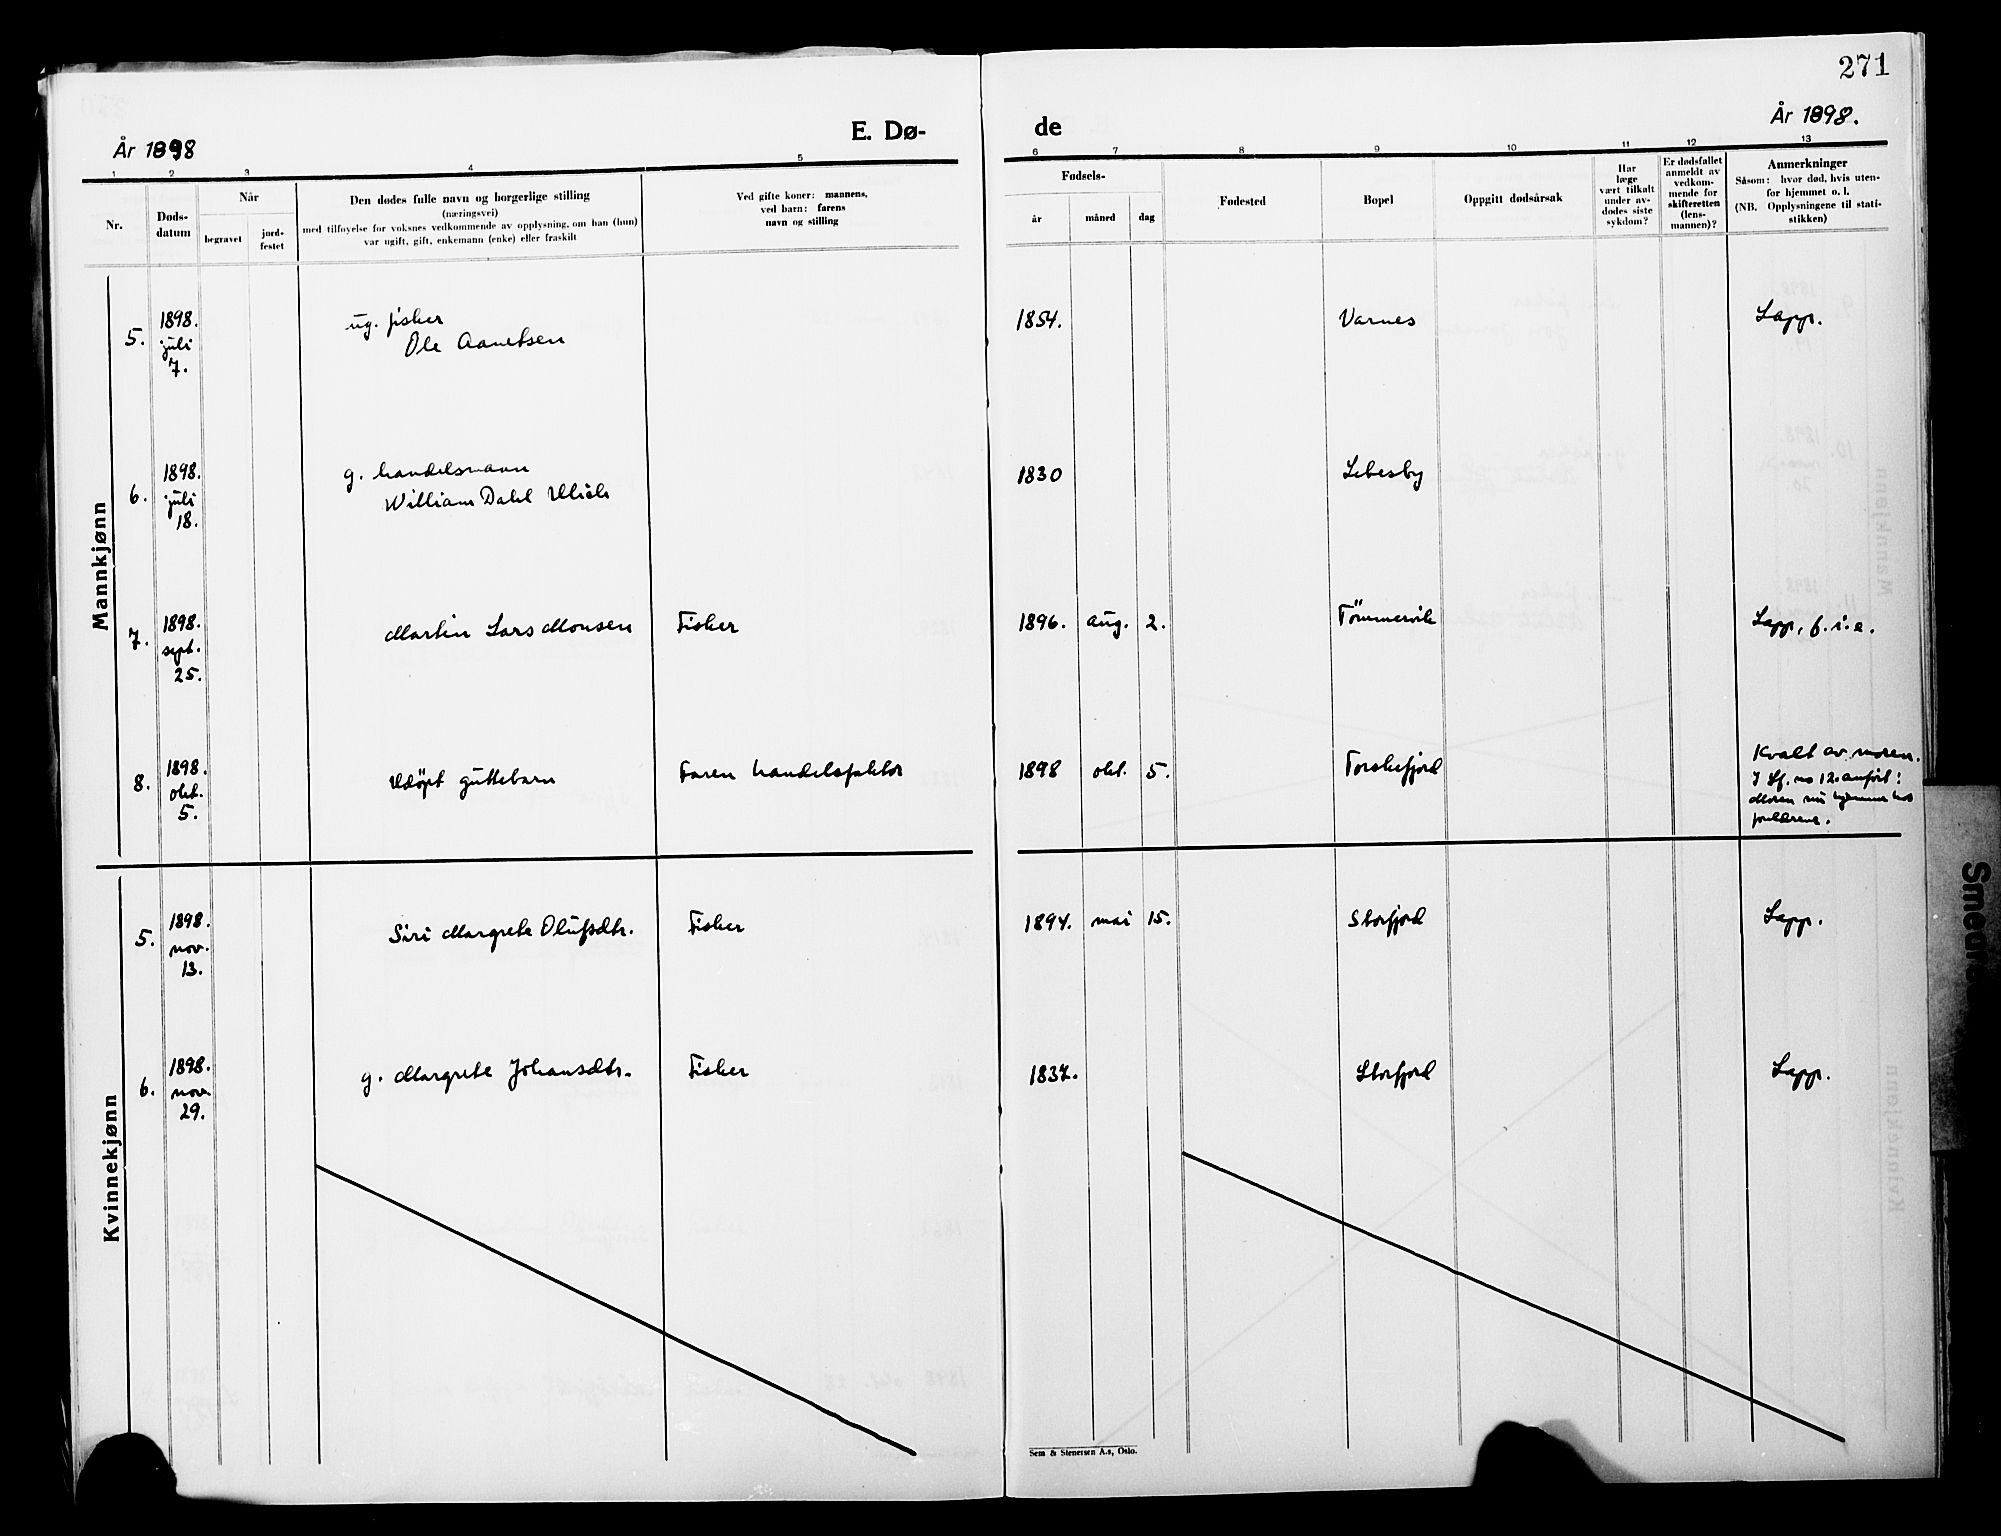 271
År 1898
E. Dø-
de
År 1898.
1 2 3 4 5 6 7 8 9 10 11 12 13
Nr.
Døds-
datum
Når
begravet
jord-
festet
Den dødes fulle navn og borgerlige stilling
(næringsvei)
med tilføyelse for voksnes vedkommende av opplysning, om han (hun)
var ugift, gift, enkemann (enke) eller fraskilt
Ved gifte koner: mannens,
ved barn: farens
navn og stilling
Fødsels-
år måned dag
Fødested
Bopel
Oppgitt dødsårsak
Har
læge
vært tilkalt
under av-
dødes siste
sykdom?
Er dødsfallet
anmeldt av
vedkom-
mende for
skifteretten
(lens-
mannen)?
Anmerkninger
Såsom: hvor død, hvis uten-
for hjemmet o. l.
(NB. Opplysningene til stati-
stikken)
Mannkjønn
5. 1898. ug. fisker 1854. Varnes Lapp.
juli Ole Aanetsen
7.
6. 1898. g. handelsmann 1830 Lebesby
juli William Dahl Ulich
18.
7. 1898. Martin Lars Monsen Fisker 1896. aug. 2. Tömmervik Lapp, f.i.e.
sept.
25.
8. 1898. Udöpt guttebarn Faren handelsfaktor 1898 okt. 5. Torskefjord Kvalt av moren.
okt. I Lf. no 12 anfört:
5. Moren nu hjemme hos
forældrene.
Kvinnekjønn
5. 1898. Siri Margrete Olufsdtr. Fisker 1894. mai 15. Storfjord Lapp.
nov.
13.
6. 1898. g. Margrete Johansdtr. Fisker 1837. Storfjord Lapp.
nov.
29.
Sem & Stenersen A.s, Oslo.